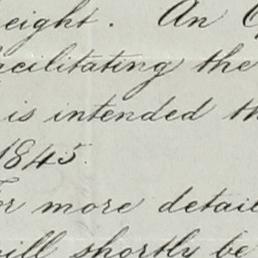 eight. An
acilitating the
is intended th
1845.
or more detail
will shortly be